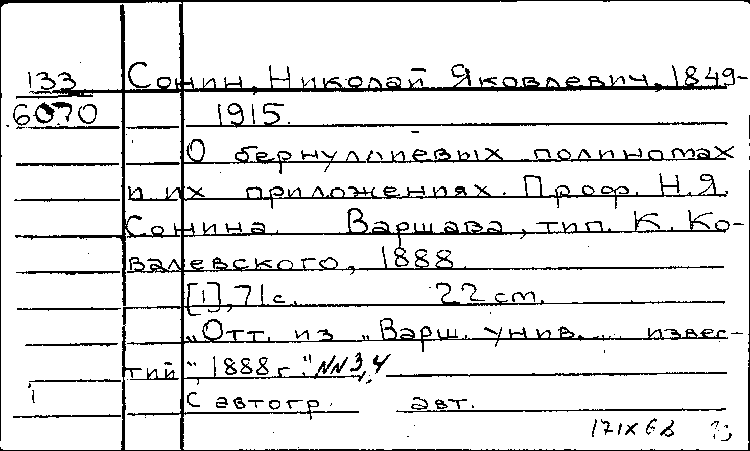 133 Сонин, Николай Яковлевич, 1849-
6070 1915.
О бернуллиевых полиномах
и их приложениях. Проф. Н.Я.
Сонина. Варшава, тип. К. Ко-
валевского, 1888.
[1], 71 с. 22 cm.
„Отт. из „Варш. унив. извес-
тий", 1888 г." NN 3,4
1 С автогр. авт.